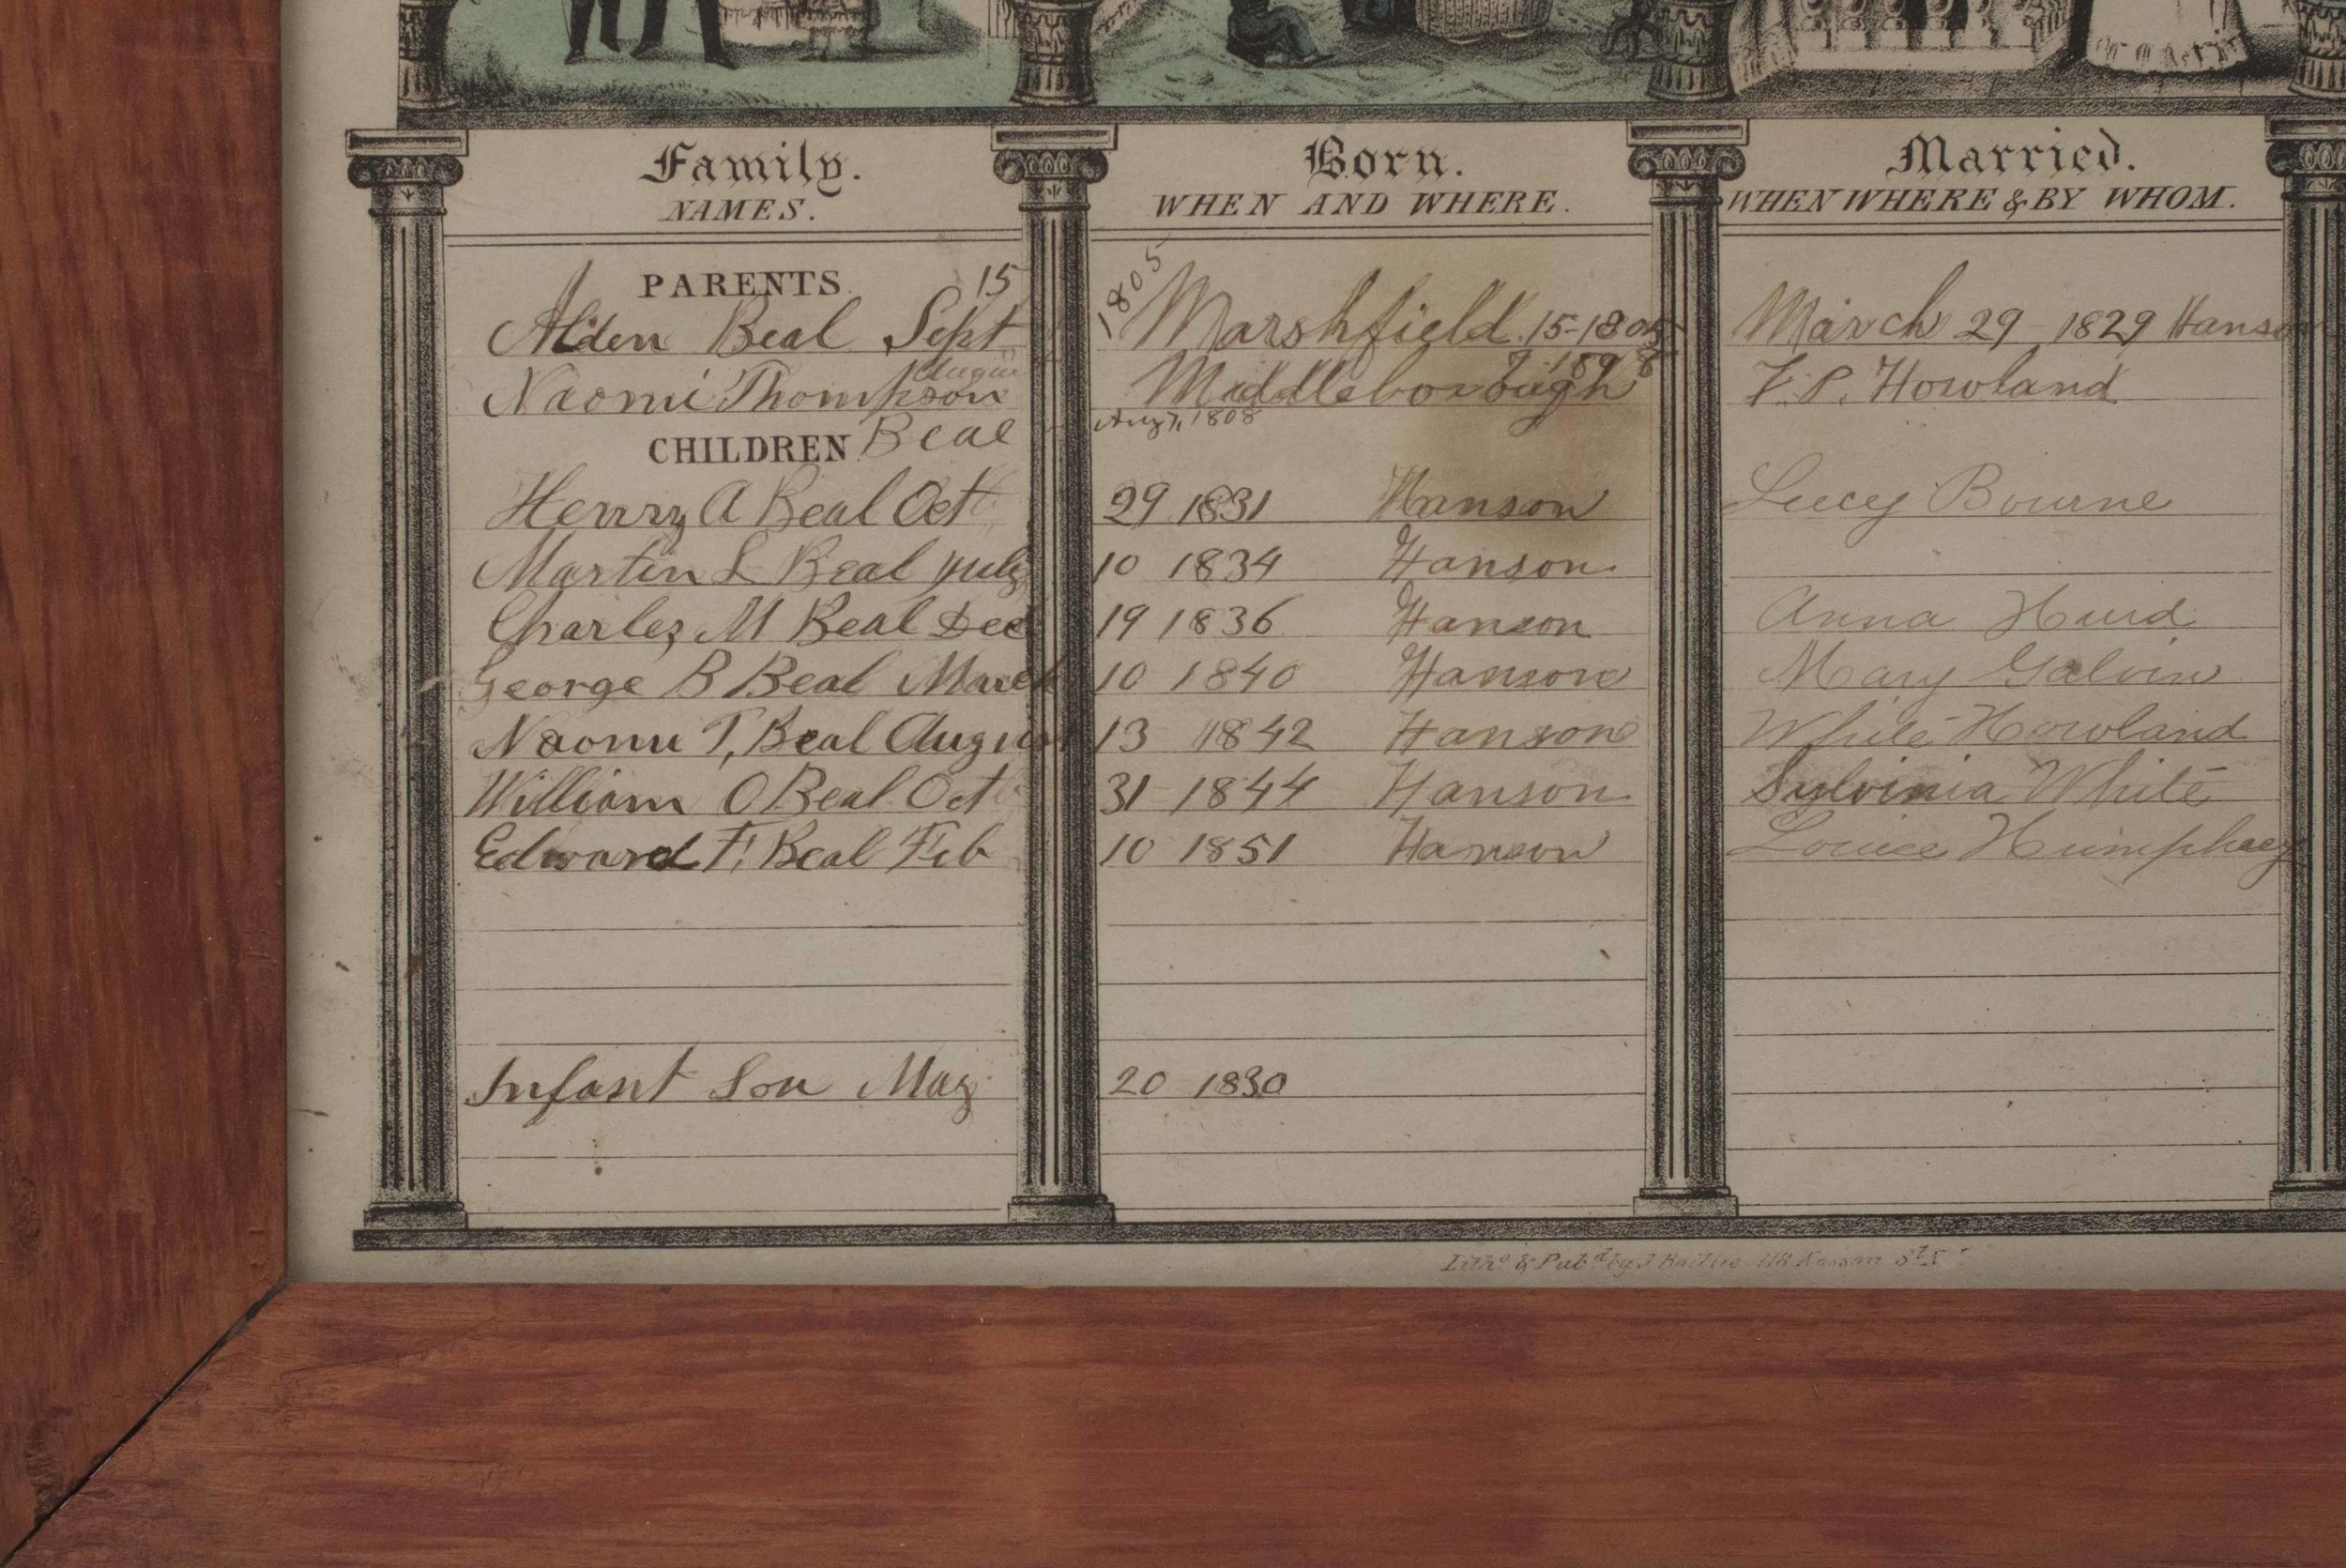 Family. Born. Married.
NAMES. WHEN AND WHERE. WHEN WHERE & BY WHOM.
PARENTS. 15 1805
Alden Beal Sept Marshfield. 15-1805 March 29-1829 Hanson
August 7-189
Naomi Thompson Middleborough F. P. Howland
CHILDREN Beal Aug 7, 1808
Henry A Beal Oct 29 1831 Hanson Lucy Bourne
Martin L Beal July 10 1834 Hanson
Charles M Beal Dec 19 1836 Hanson Anna Hurd
George B Beal March 10 1840 Hanson Mary Galvin
Naomi T, Beal August 13 1842 Hanson White Howland
William O Beal Oct 31 1844 Hanson Sylvinia White
Edward F. Beal Feb 10 1851 Hanson Louise Humphrey
Infant Son May 20 1830
Litho. & Pubd. by J. Baillie 118 Nassau St. N